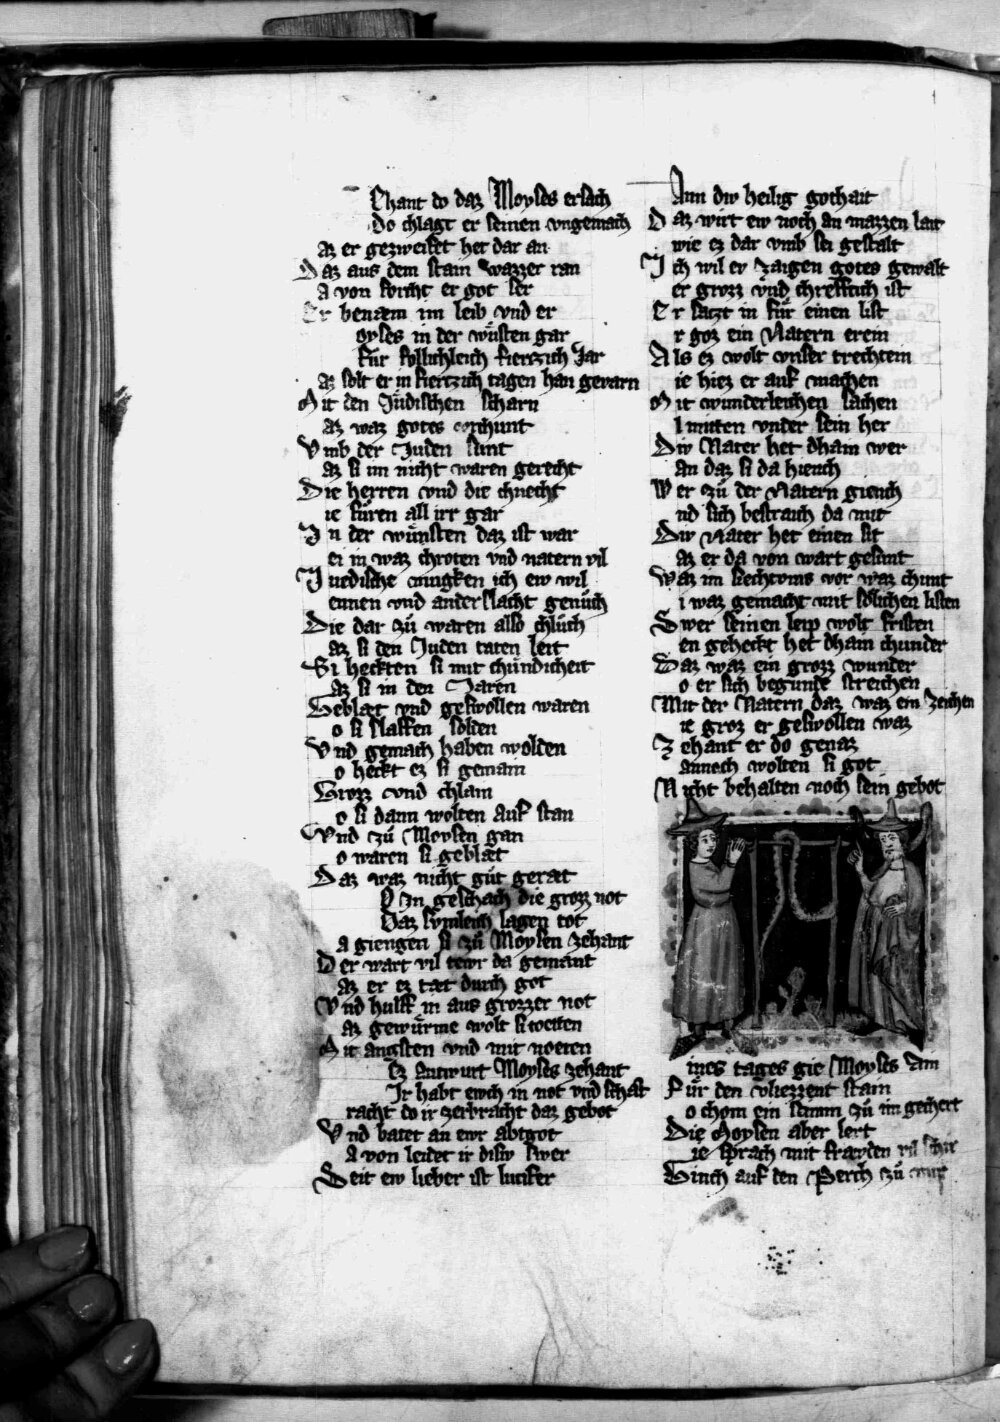 Ehant do daz Moyses ersach
Do chlagt er seinen vngemach
az er gezweifelt het dar an
Daz aus dem stain wazzer ran
a von spricht er got ser
Er benaem im leib vnd er
oyses in der wüsten gar
für follichleich fierczich Jar
az solt er in fierczich tagen han gevarn
Mit den Jüdischen scharn
az waz gotes vrchunt
Vmb der Juden sunt
az si im nicht waren gerecht
Die herren vnd die chnecht
ie füren all irr gar
In der wünsten daz ist war
ei in waz chroten vnd natern vil
Juedische mugken ich ew wil
ennen vnd ander slacht genüch
Die dar zü waren also chlüch
az si den Juden taten leit
Si heckten si mit chündicheit
az si in den Jaren
Geblæt vnd geswollen waren
o si slaffen solden
Vnd gemach haben wolden
o heckt ez si gemain
Grozz vnd chlain
o si dann wolten auf stan
Vnd zü Moysen gan
o waren si geblæt
Daz waz nicht güt geræt
O in geschach die grozz not
Daz sümleich lagen tot
a giengen si zü Moysen zehant
Der wart vil tewr da gemant
az er ez tæt durch got
Vnd hulff in aus grozzer not
az gewürme wolt si toetten
Mit angsten vnd mit noeten
Ez antwurt Moyses zehant
Ir habt ewch in not vnd schaft
racht do ir zerbracht daz gebot
Vnd batet an ewr abtgot
a von leidet ir disiv swer
Seit ew lieber ist lucifer
Ann div heilig gothait
Daz wirt ew noch an mazzen lait
wie ez dar vmb sei gestalt
Ich wil ev zaigen gotes gewalt
er grozz vnd chrefftich ist
Er saczt in für einen list
r goz ein Natern erein
Als ez wolt vnser trechtein
ie hiez er auf machen
Mit wunderleichen sachen
l mitten vnder sein her
Div Nater het dhain wer
an daz si da hiench
Wer zü der Natern giench
nd sich bestraich da mit
Div Nater het einen sit
az er da von wart gesunt
Waz im siechtvms vor waz chunt
i waz gemacht mit sölichen listen
Swer seinen leip wolt fristen
en geheckt het dhain chunder
Daz waz ein grozz wunder
o er sich begunde streichen
Mit der Natern daz waz ein zeichen
ie groz er geswollen waz
Zehant er do genaz
annoch wolten si got
Nicht behalten noch sein gebot
ines tages gie Moyses Ain
Für den vliezzent stain
o chom ein stimm zü im gechert
Die Moysen aber lert
ie sprach mit fræwden vil schir
Ginch auf den Perch zü mir